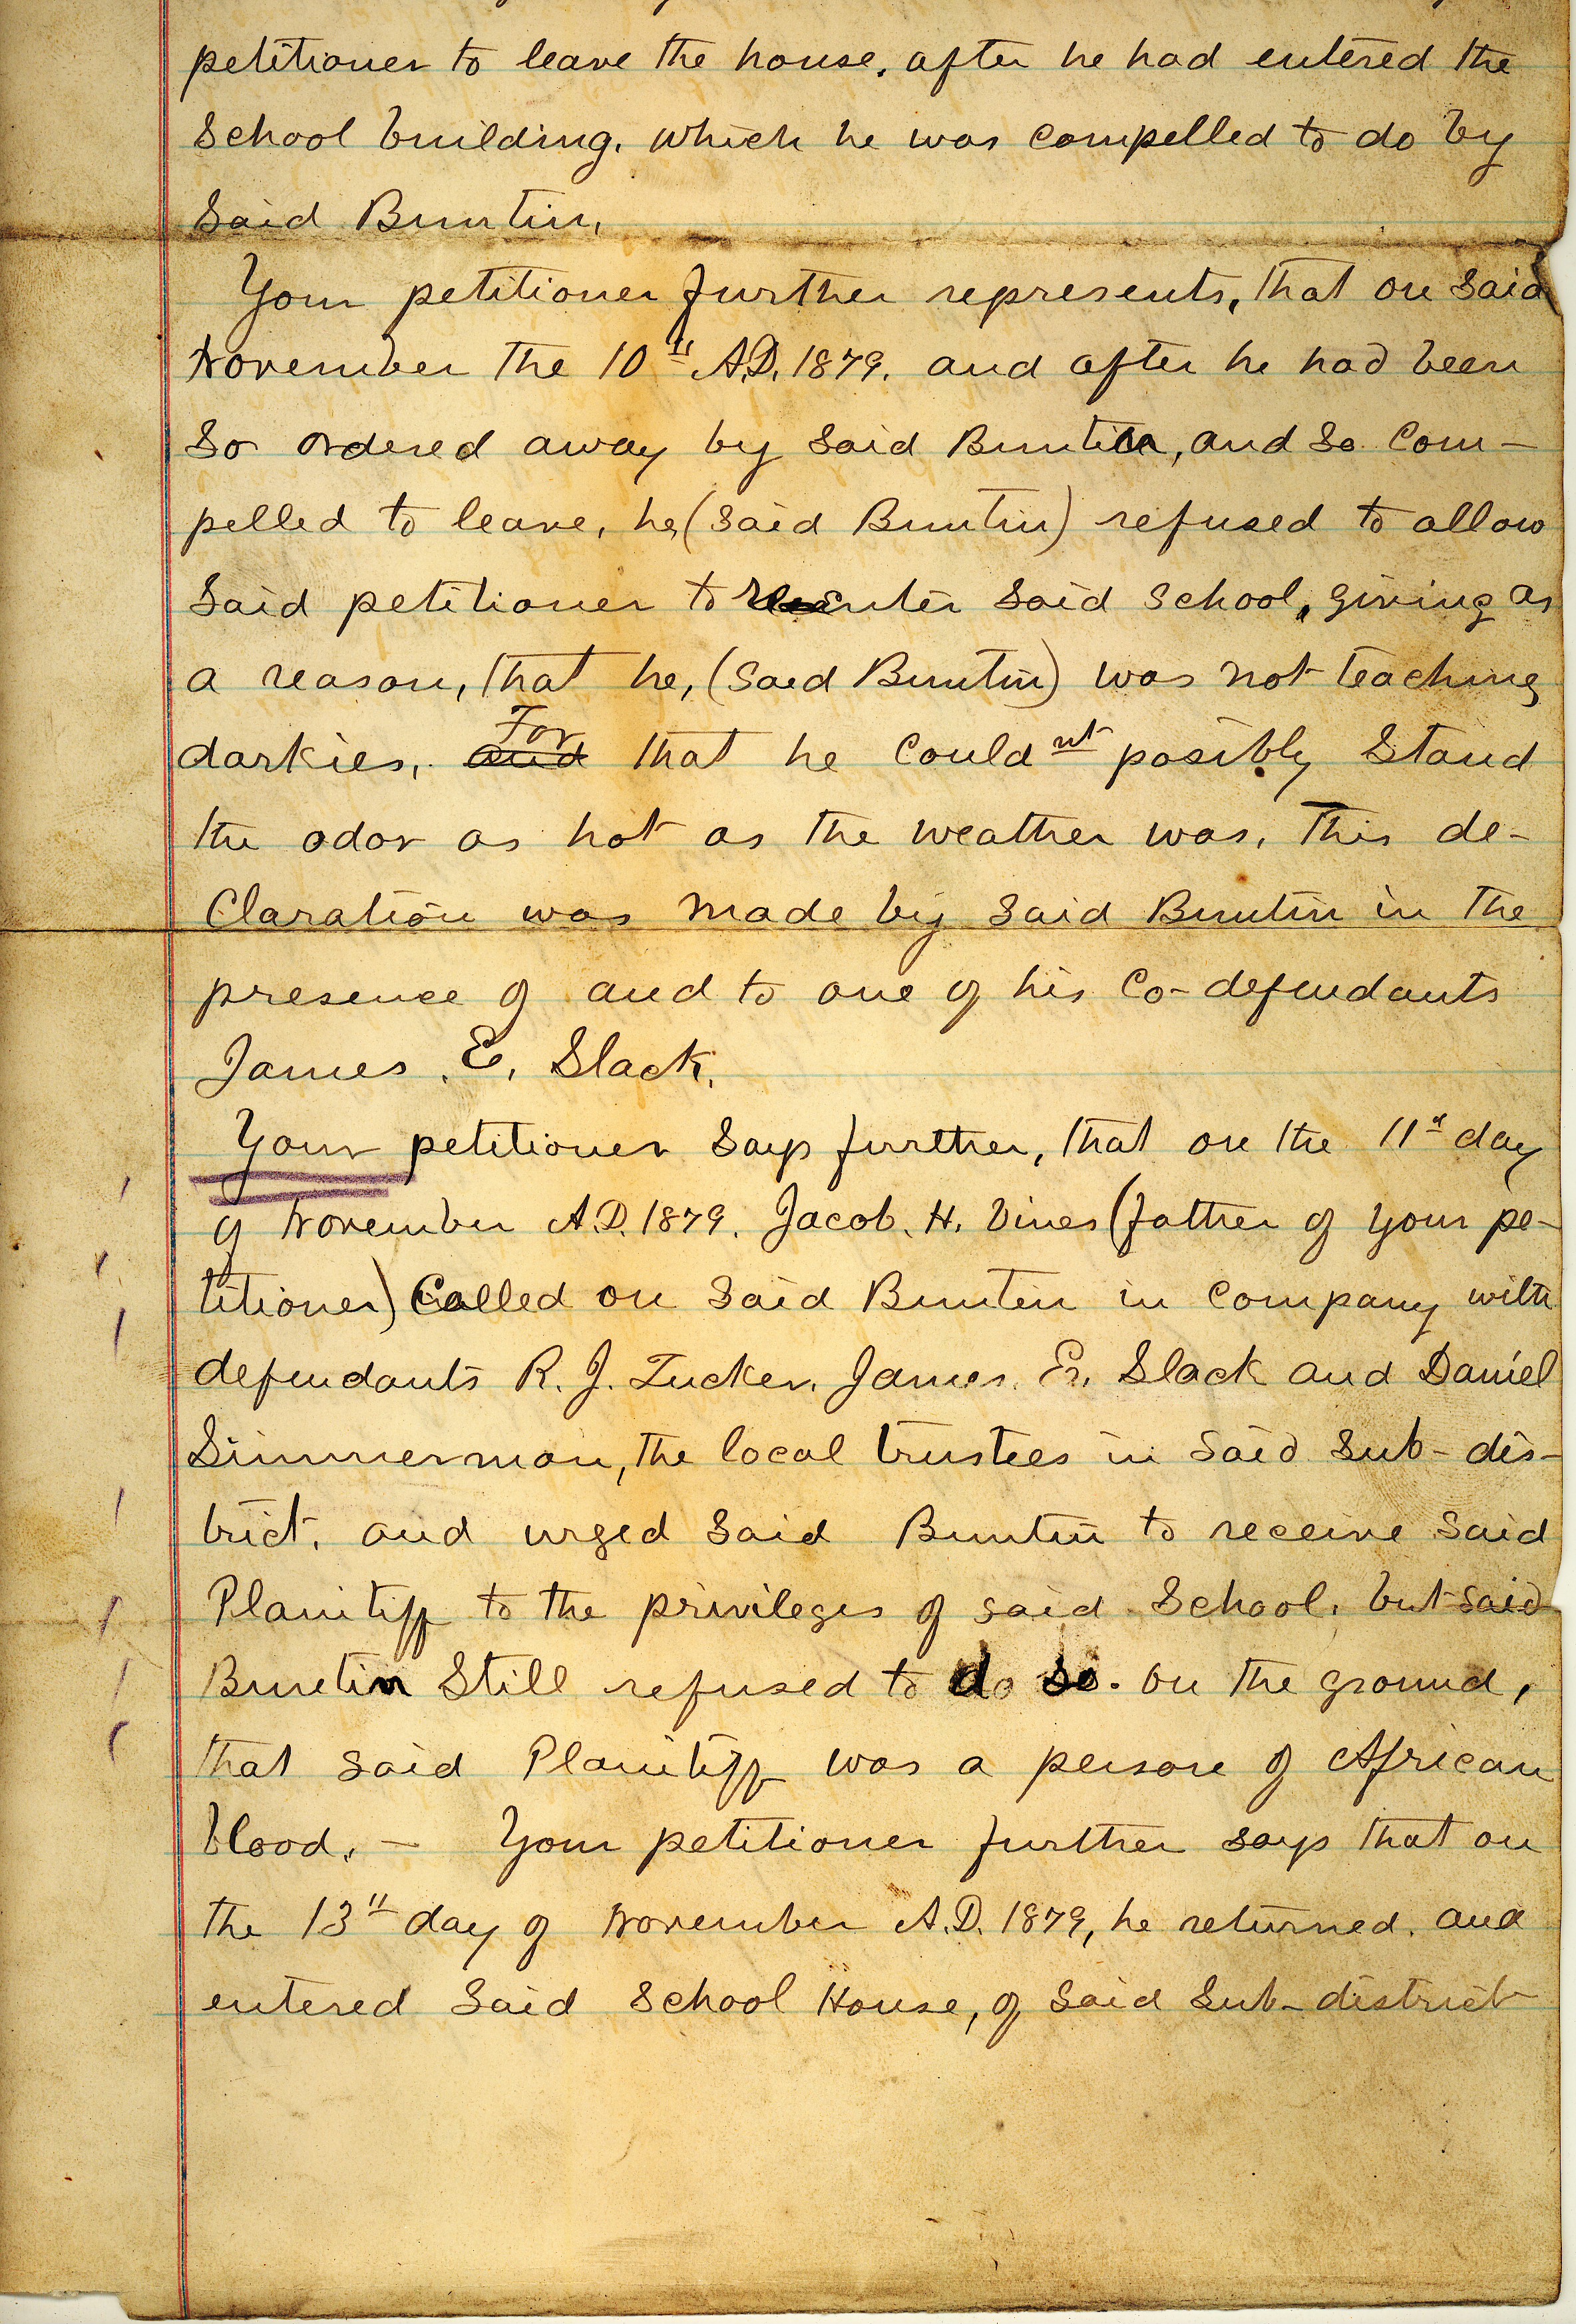 petitioner to leave the house, after he had entered the
School building. which he was compelled to do by
Said Buntin.
Your petitioner further represents, that on Said
November the 10th A.D. 1879. and after he had been
So ordered away by Said Buntin, and So Com-
pelled to leave, he, (Said Buntin) refused to allow
Said petitioner to Reenter Said School, giving as
a reason, that he, (Said Buntin) was not teaching
darkies, and For that he Could nt posibly Stand
the odor as hot as the weather was. This de-
Claration was made by Said Buntin in the
presence of and to one of his Co-defendants
James. E. Slack.
Your petitioner Says further, that on the 11th day
of November A.D. 1879. Jacob. H. Vines (father of your pe-
titioner) Called on Said Buntin in Company with
defendants R. J. Tucker. James. E. Slack and Daniel
Simmerman, the local trustees in Said Sub-dis-
trict. and urged Said Buntin to receive Said
Plaintiff to the privileges of said School. but said
Buntin Still refused to do so. on the ground,
that said Plaintiff was a person of African
blood. - Your petitioner further says that on
the 13th day of November A.D. 1879, he returned. and
entered Said School House, of Said Sub-district